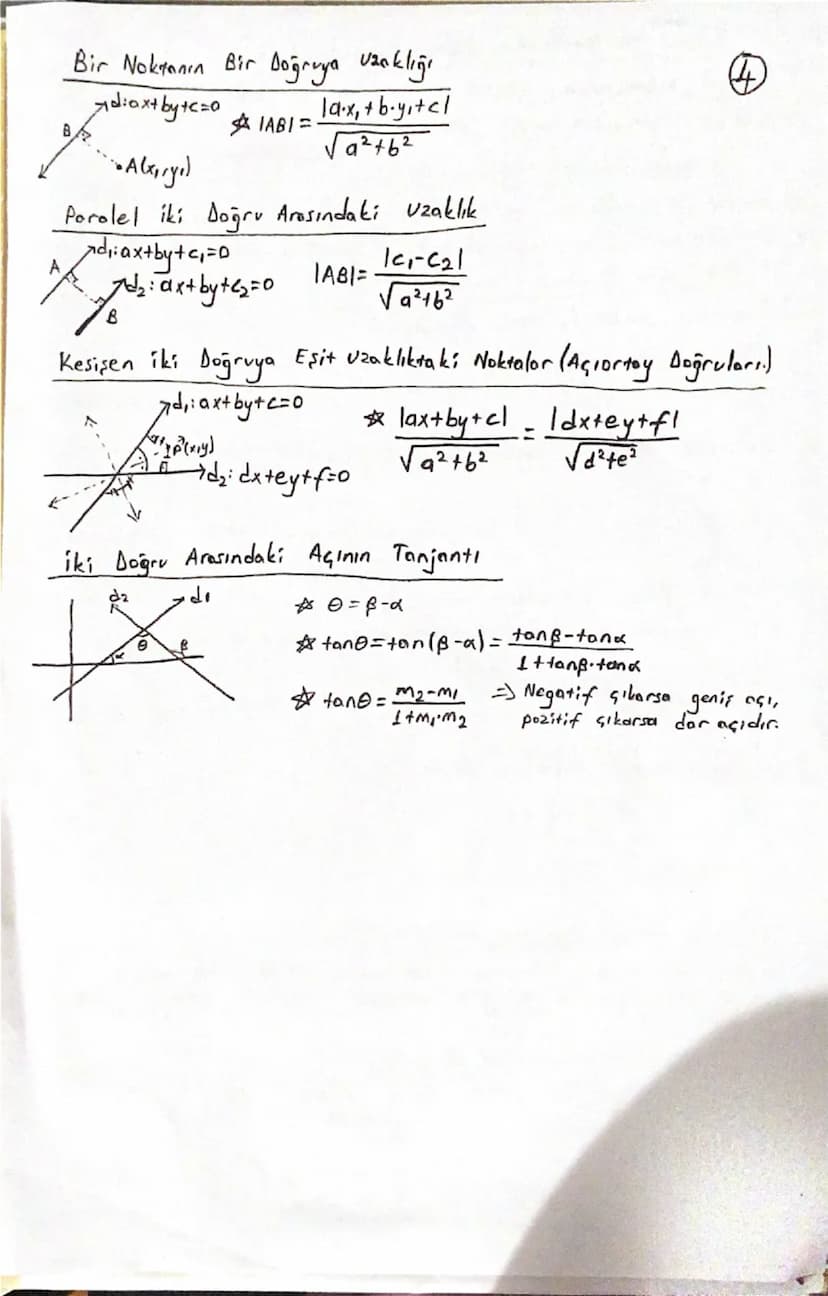 Bir Noktanın Bir Doğruya Uzaklığı
④
d: ax+by+c=0
B
A(x₁,y₁)
☆ |AB| = |a·x₁+b·y₁+c| / √(a²+b²)
Paralel iki Doğru Arasındaki Uzaklık
d₁: ax+by+c₁=0
A
d₂: ax+by+c₂=0
B
|AB| = |c₁-c₂| / √(a²+b²)
Kesişen iki Doğruya Eşit Uzaklıktaki Noktalar (Açıortay Doğruları.)
d₁: ax+by+c=0
P(x,y)
d₂: dx+ey+f=0
☆ |ax+by+c| / √(a²+b²) = |dx+ey+f| / √(d²+e²)
iki Doğru Arasındaki Açının Tanjantı
d2 d1
θ
α β
☆ θ=β-α
☆ tanθ=tan(β-α) = (tanβ-tanα) / (1+tanβ·tanα)
☆ tanθ = (m₂-m₁) / (1+m₁·m₂) => Negatif çıkarsa geniş açı,
pozitif çıkarsa dar açıdır.